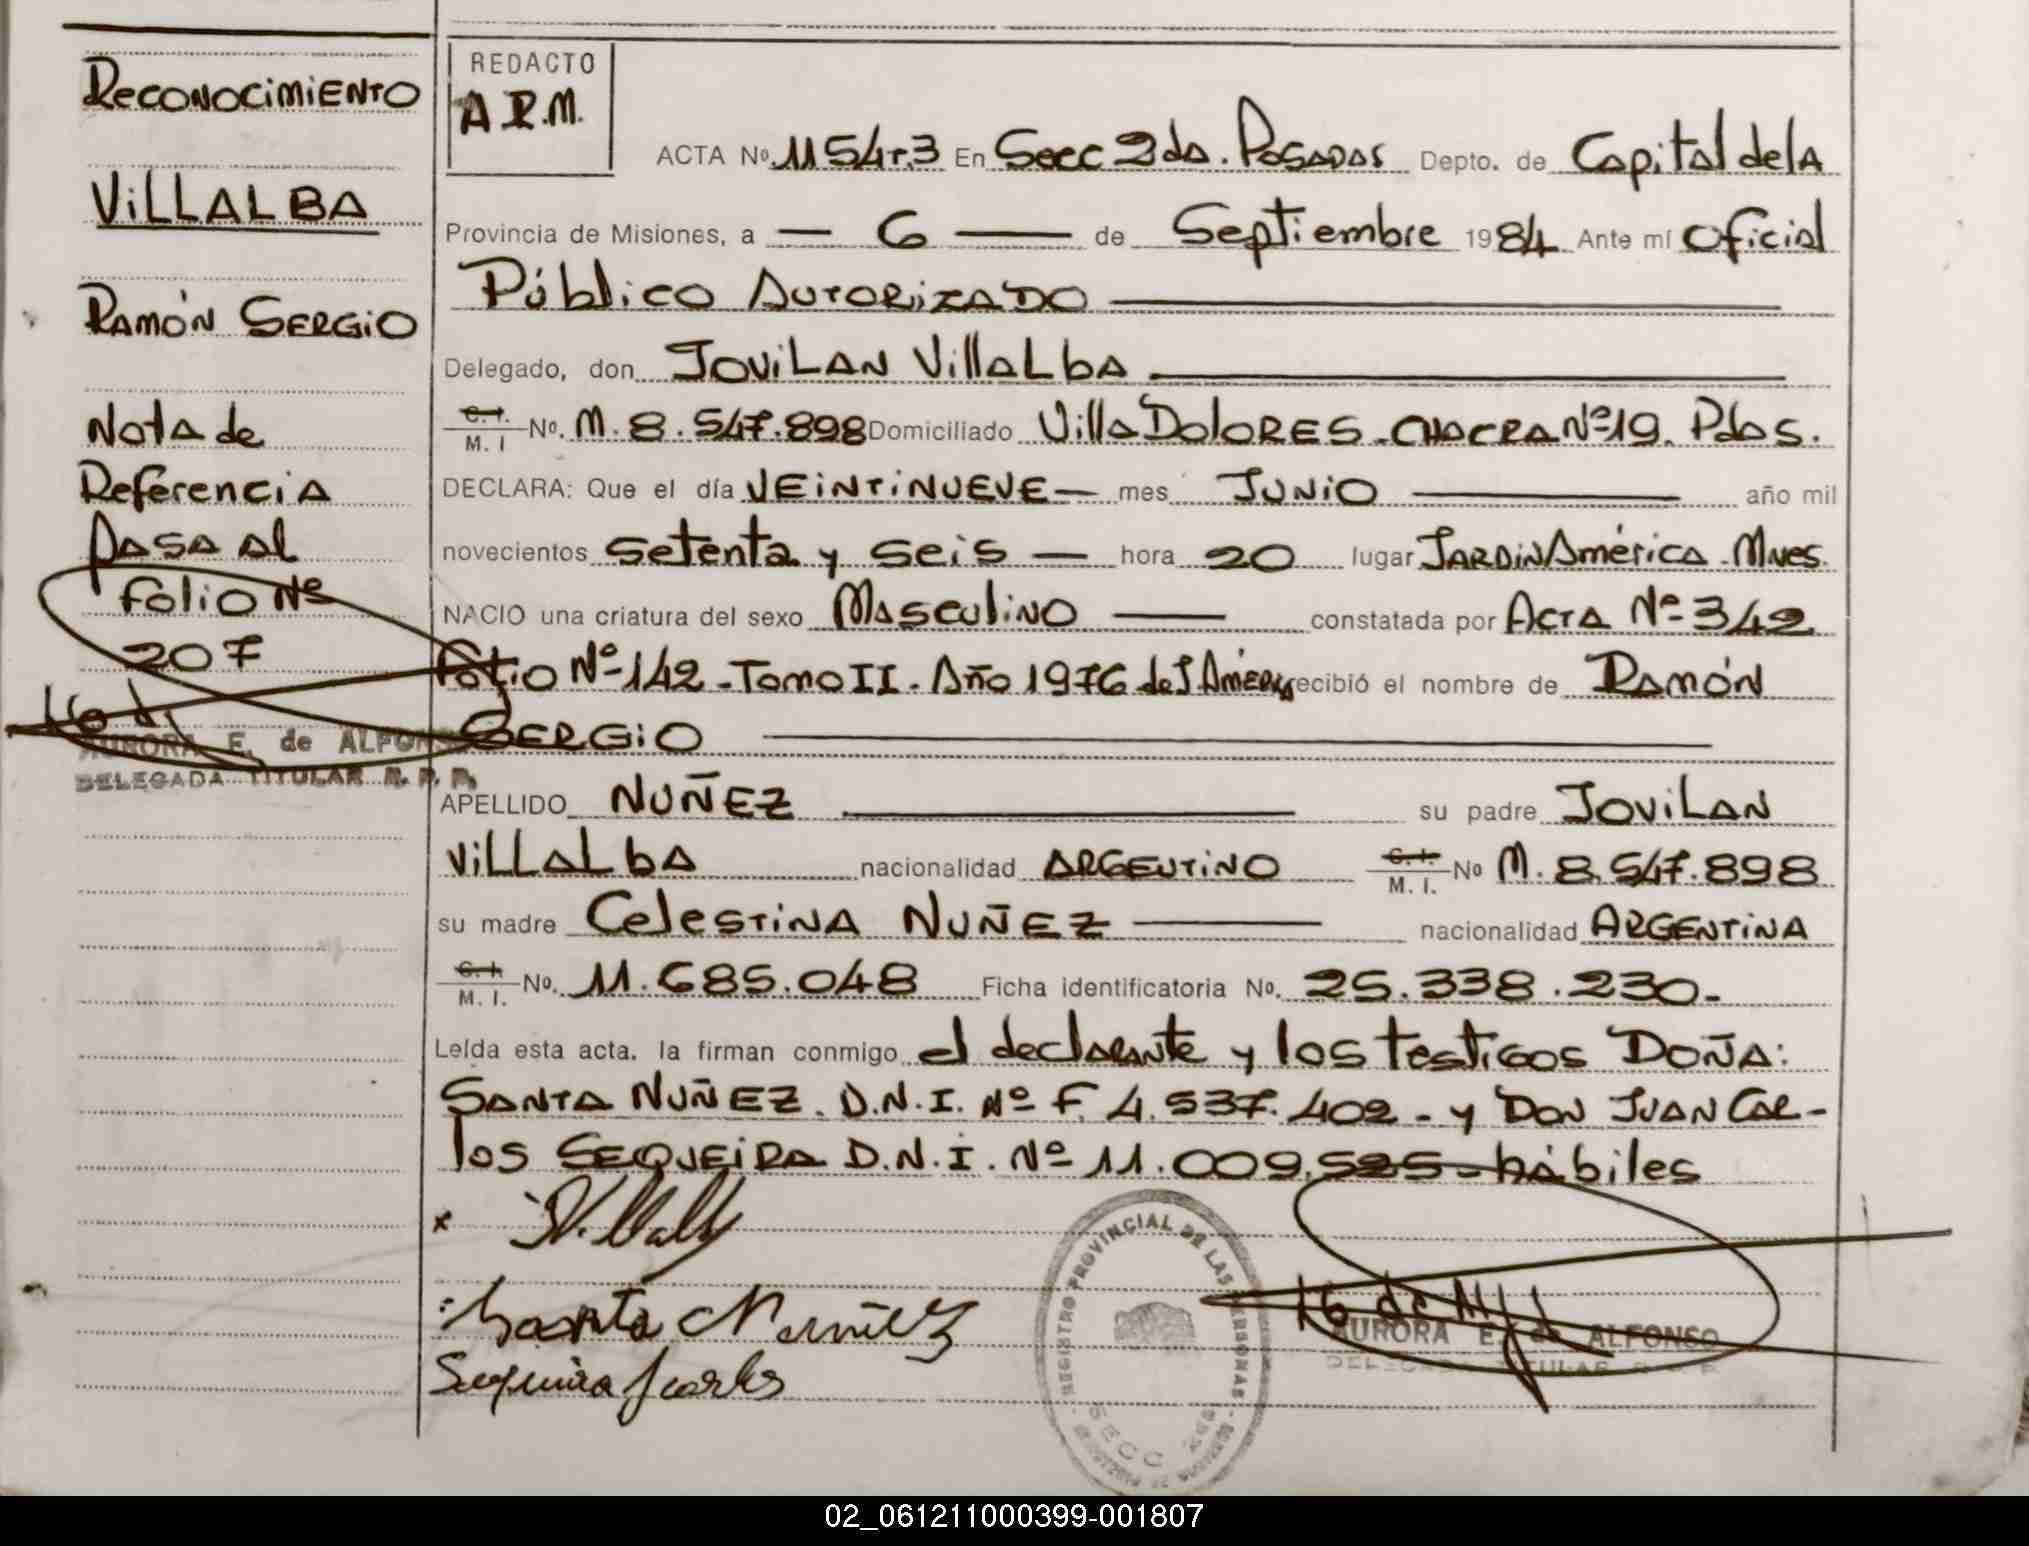 Reconocimiento
VILLALBA
Ramón Sergio
Nota de
Referencia
Pasa al
Folio Nº
207
AURORA E. de ALFONSO
DELEGADA TITULAR R. P. P.
REDACTO
ACTA Nº 1154 T.3 En Secc 2da. Posadas Depto. de Capital de la
Provincia de Misiones, a — 6 — de Septiembre 1984 Ante mí Oficial
Público Autorizado
Delegado, don Jovilan Villalba
C.I. / M. I Nº. M. 8.547.898 Domiciliado Villa Dolores. Chacra Nº 19. Pdas.
DECLARA: Que el día Veintinueve — mes Junio — año mil
novecientos Setenta y Seis — hora 20 lugar Jardin América. Mnes.
NACIO una criatura del sexo Masculino — constatada por Acta Nº 342
Folio Nº 142 - Tomo II. Año 1976 de J. Amér recibió el nombre de Ramón
Sergio
APELLIDO NUÑEZ — su padre Jovilan
Villalba nacionalidad Argentino C.I. / M. I. Nº M. 8.547.898
su madre Celestina Nuñez — nacionalidad Argentina
C.I. / M. I. Nº. 11.685.048 Ficha identificatoria Nº. 25.338.230.-
Leída esta acta. la firman conmigo el declarante y los testigos Doña:
Santa Nuñez. D.N.I. Nº F. 4.537.402 - y Don Juan Car-
los Sequeira D.N.I. Nº 11.009.525 - hábiles
x JVillalb
Santa Nuñez
Sequeira J carlos
REGISTRO PROVINCIAL DE LAS PERSONAS
SECC 2da
AURORA E. de ALFONSO
DELEGADA TITULAR R. P. P.
02_061211000399-001807